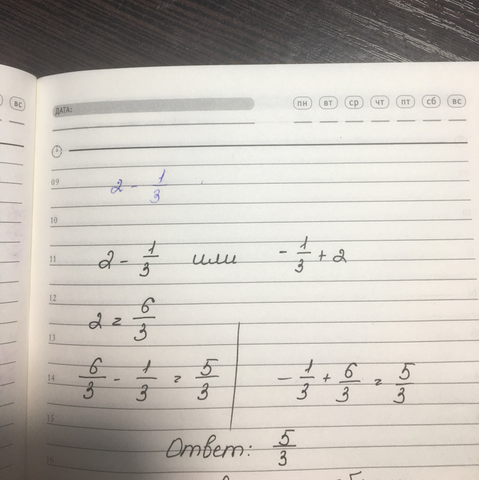 вс
ДАТА: пн вт ср чт пт сб вс
09 2 - 1/3
10
11 2 - 1/3 или - 1/3 + 2
12
2 = 6/3
13
14 6/3 - 1/3 = 5/3 - 1/3 + 6/3 = 5/3
15
Ответ: 5/3